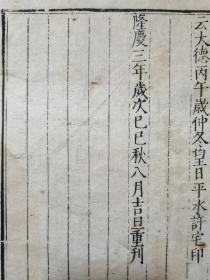 云大德丙午歲仲冬望日平水許宅印
隆慶三年歲次己巳秋八月吉旦重刊